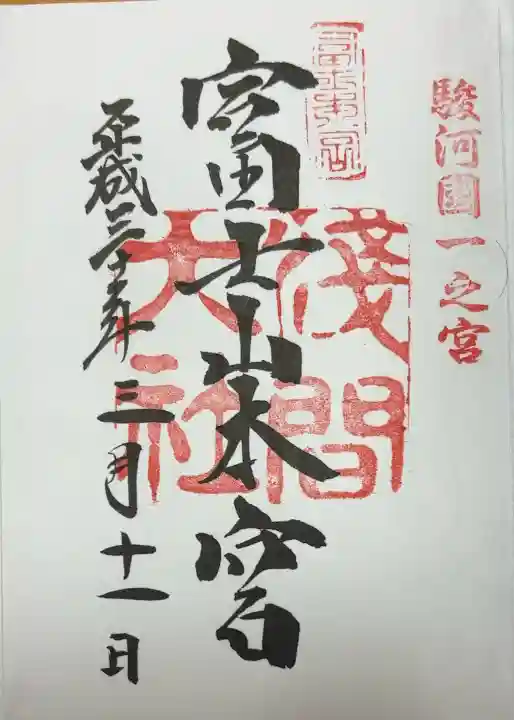 駿河國一之宮
富士本宮
淺間
大社
富士山本宮
平成三十年三月十一日